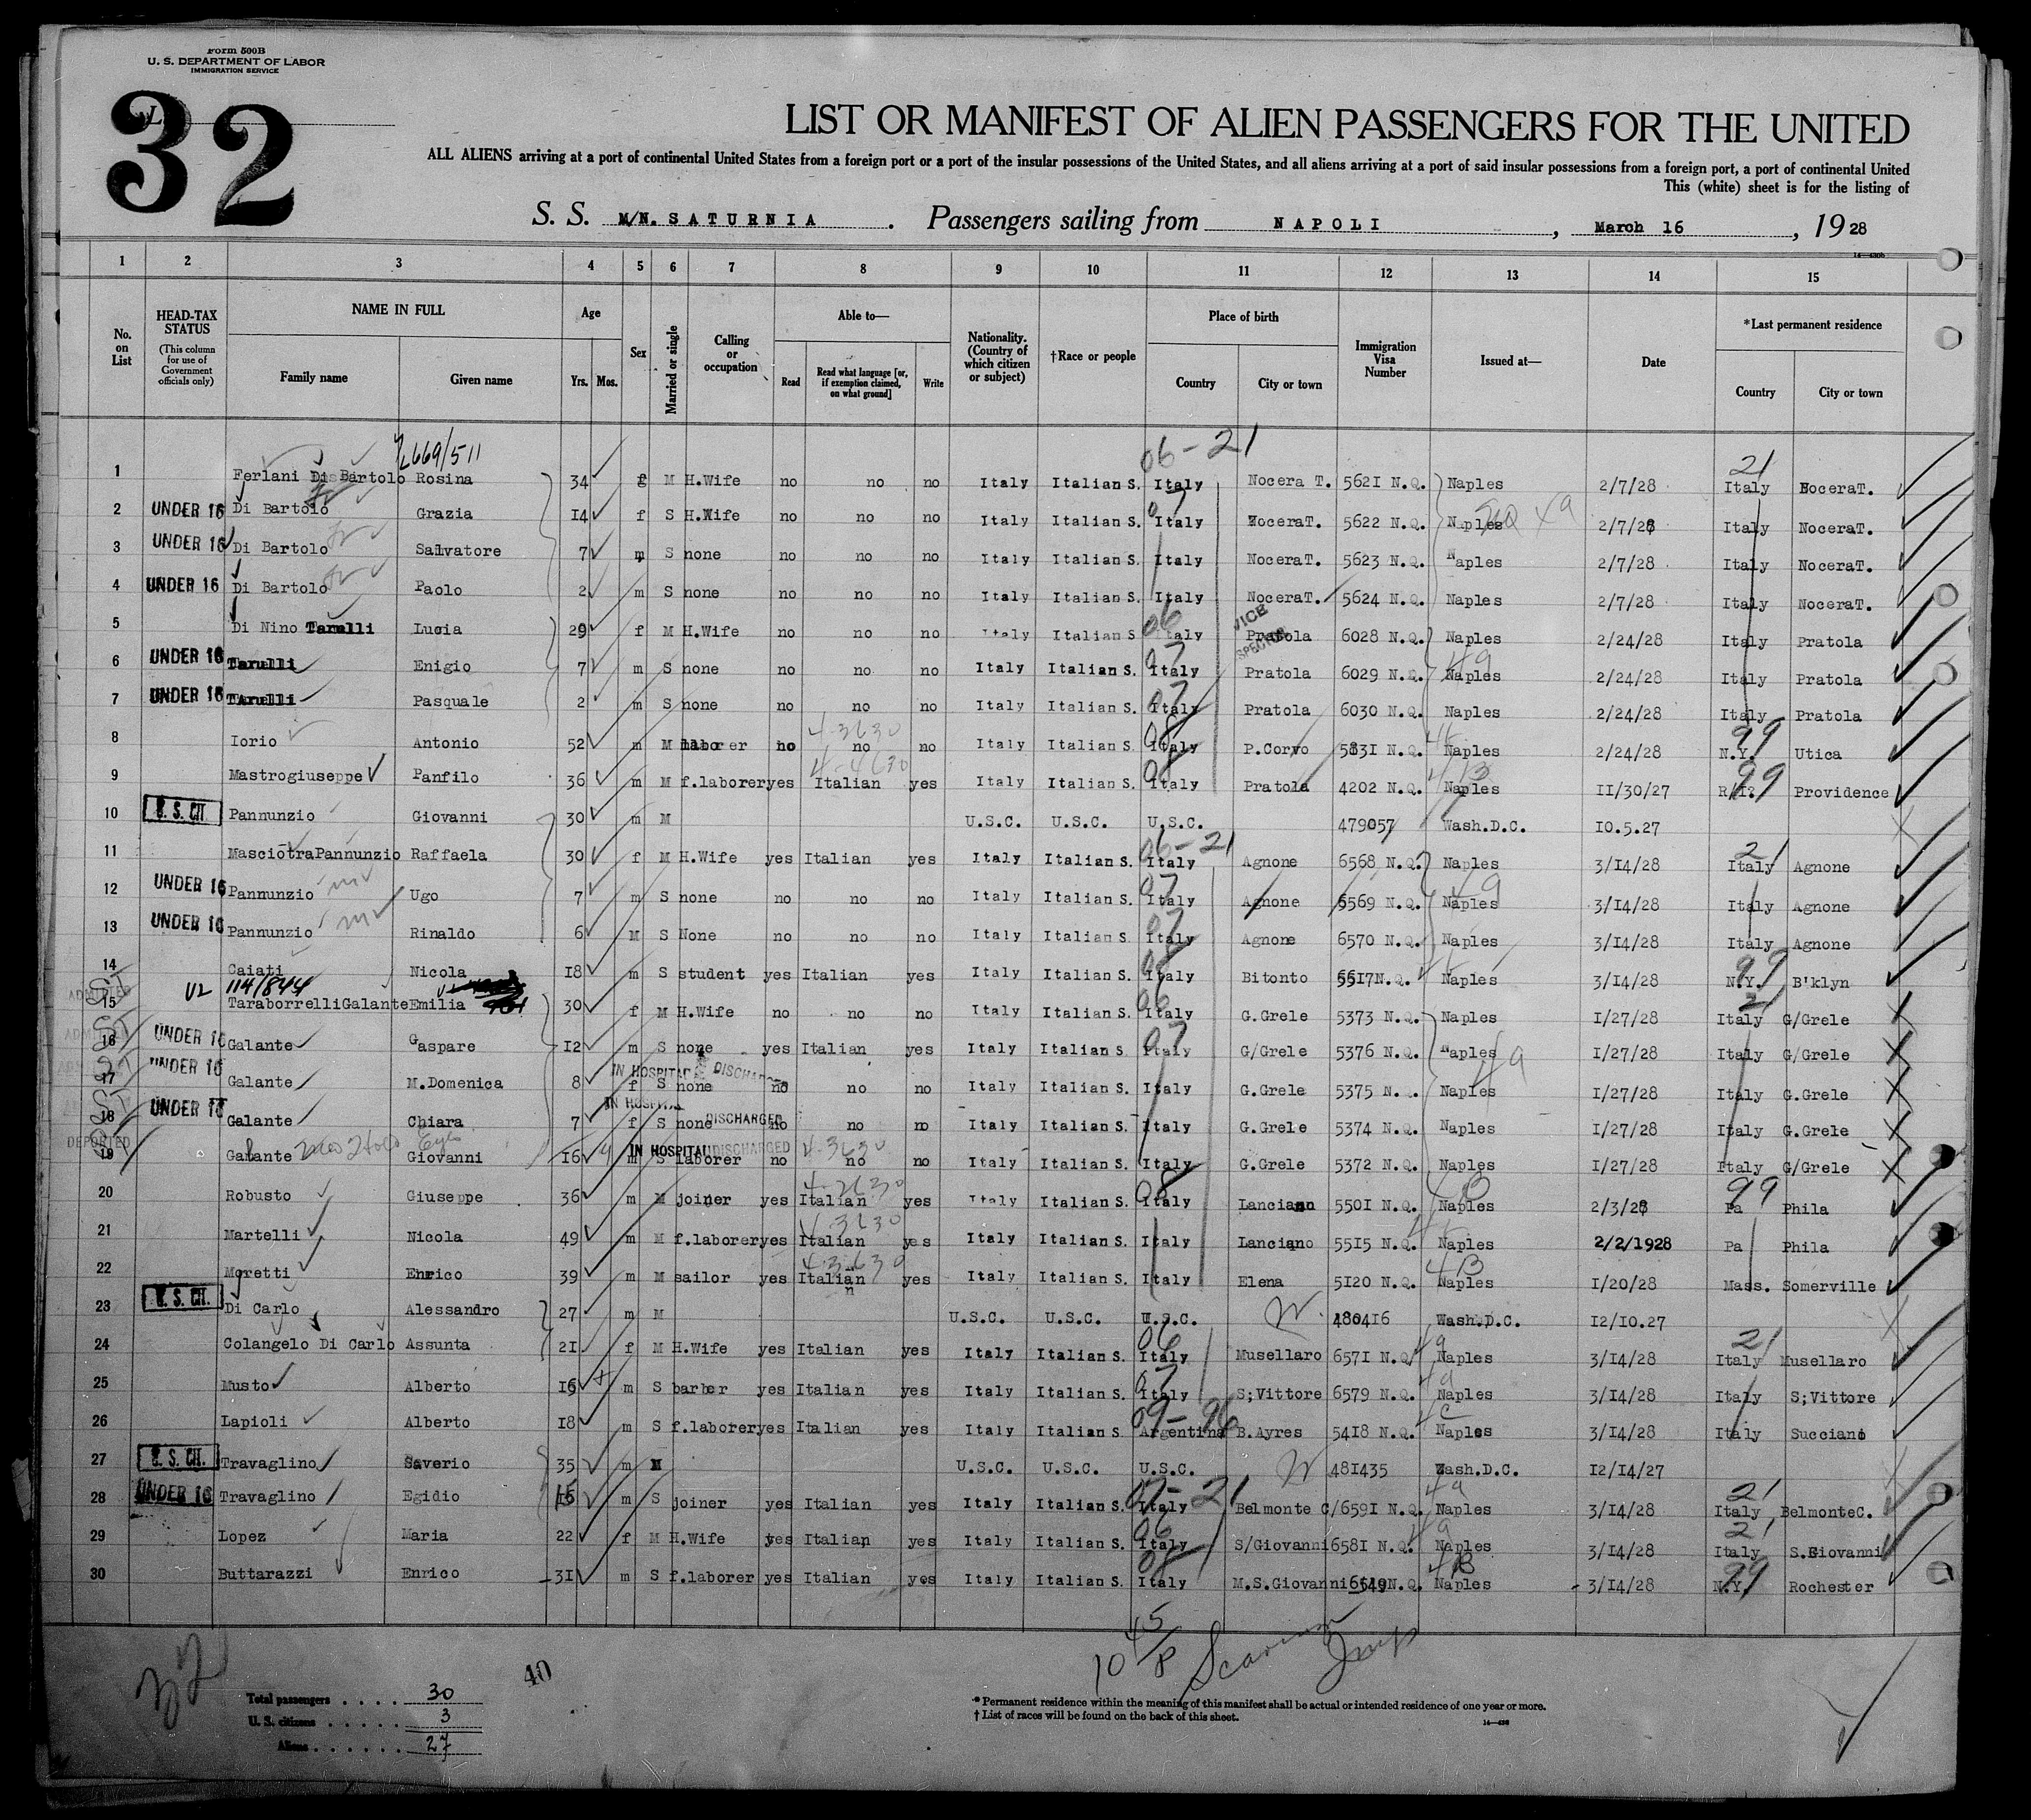 Form 500B
U. S. DEPARTMENT OF LABOR
IMMIGRATION SERVICE
32
LIST OR MANIFEST OF ALIEN PASSENGERS FOR THE UNITED
ALL ALIENS arriving at a port of continental United States from a foreign port or a port of the insular possessions of the United States, and all aliens arriving at a port of said insular possessions from a foreign port, a port of continental United
This (white) sheet is for the listing of
S. S. M/N. SATURNIA . Passengers sailing from NAPOLI , March 16 , 1928
1 2 3 4 5 6 7 8 9 10 11 12 13 14 15
No. on List HEAD-TAX STATUS (This column for use of Government officials only) NAME IN FULL Family name Given name Age Yrs. Mos. Sex Married or single Calling or occupation Able to— Read Read what language [or, if exemption claimed, on what ground] Write Nationality. (Country of which citizen or subject) †Race or people Place of birth Country City or town Immigration Visa Number Issued at— Date *Last permanent residence Country City or town
2669/511 06-21
1 Ferlani Di Bartolo Rosina 34 f M H.Wife no no no Italy Italian S. Italy Nocera T. 5621 N.Q. Naples 2/7/28 21 Italy NoceraT.
2 UNDER 16 Di Bartolo Grazia 14 f S H.Wife no no no Italy Italian S. Italy NoceraT. 5622 N.Q. Naples 2/7/28 Italy NoceraT.
3 UNDER 16 Di Bartolo Salvatore 7 m S none no no no Italy Italian S. Italy NoceraT. 5623 N.Q. Naples 2/7/28 Italy NoceraT.
4 UNDER 16 Di Bartolo Paolo 2 m S none no no no Italy Italian S. Italy NoceraT. 5624 N.Q. Naples 2/7/28 Italy NoceraT.
5 Di Nino Tarulli Lucia 29 f M H.Wife no no no Italy Italian S 06 Italy Pratola 6028 N.Q. Naples 2/24/28 Italy Pratola
6 UNDER 16 Tarulli Enigio 7 m S none no no no Italy Italian S. 07 Italy Pratola 6029 N.Q. 49 Naples 2/24/28 Italy Pratola
7 UNDER 16 TArulli Pasquale 2 m S none no no no Italy Italian S. 07 Italy Pratola 6030 N.Q. Naples 2/24/28 Italy Pratola
8 Iorio Antonio 52 m M laborer no 4-3630 no no Italy Italian S. 08 Italy P.Corvo 5831 N.Q. Naples 2/24/28 99 N.Y. Utica
9 Mastrogiuseppe Panfilo 36 m M f.laborer yes Italian yes Italy Italian S. 08 Italy Pratola 4202 N.Q. 4B Naples 11/30/27 99 R.I. Providence
10 U. S. CIT. Pannunzio Giovanni 30 m M U.S.C. U.S.C. U.S.C. 479057 Wash.D.C. 10.5.27
11 MasciotraPannunzio Raffaela 30 f M H.Wife yes Italian yes Italy Italian S. 06-21 Italy Agnone 6568 N.Q. Naples 3/14/28 21 Italy Agnone
12 UNDER 16 Pannunzio Ugo 7 m S none no no no Italy Italian S. 07 Italy Agnone 6569 N.Q. 49 Naples 3/14/28 Italy Agnone
13 UNDER 16 Pannunzio Rinaldo 6 M S None no no no Italy Italian S. 07 Italy Agnone 6570 N.Q. Naples 3/14/28 Italy Agnone
14 Caiati Nicola 18 m S student yes Italian yes Italy Italian S. 08 Italy Bitonto 5517N.Q. Naples 3/14/28 99 N.Y. B'klyn
ADMITTED V2 114/844
15 TaraborrelliGalante Emilia 30 f M H.Wife no no no Italy Italian S. 06 Italy G.Grele 5373 N.Q. Naples 1/27/28 21 Italy G/Grele
16 UNDER 16 Galante Gaspare 12 m S none yes Italian yes Italy Italian S 07 Italy G/Grele 5376 N.Q. Naples 1/27/28 Italy G/Grele
17 UNDER 16 Galante M.Domenica 8 f S none IN HOSPITAL DISCHARGED no no no Italy Italian S. Italy G.Grele 5375 N.Q. 49 Naples 1/27/28 Italy G.Grele
18 UNDER 16 Galante Chiara 7 f S none IN HOSPITAL DISCHARGED no no no Italy Italian S. Italy G.Grele 5374 N.Q. Naples 1/27/28 Italy G.Grele
19 DEPORTED Galante Giovanni 16 m S laborer IN HOSPITAL DISCHARGED no 4-3630 no no Italy Italian S. Italy G.Grele 5372 N.Q. Naples 1/27/28 Italy G/Grele
20 Robusto Giuseppe 36 m M joiner yes Italian yes Italy Italian S. 08 Italy Lanciano 5501 N.Q. 4B Naples 2/3/28 99 Pa Phila
21 Martelli Nicola 49 m M f.laborer yes 4-3630 Italian yes Italy Italian S. Italy Lanciano 5515 N.Q. Naples 2/2/1928 Pa Phila
22 Moretti Enrico 39 m M sailor yes 4-3-630 Italian yes Italy Italian S. Italy Elena 5120 N.Q. 4B Naples 1/20/28 Mass. Somerville
23 U. S. CIT. Di Carlo Alessandro 27 m M U.S.C. U.S.C. U.S.C. 480416 Wash.D.C. 12/10.27
24 Colangelo Di Carlo Assunta 21 f M H.Wife yes Italian yes Italy Italian S. 06 Italy Musellaro 6571 N.Q. 49 Naples 3/14/28 21 Italy Musellaro
25 Musto Alberto 16 m S barber yes Italian yes Italy Italian S. 07 Italy S;Vittore 6579 N.Q. 49 Naples 3/14/28 Italy S;Vittore
26 Lapioli Alberto 18 m S f.laborer yes Italian yes Italy Italian S. 09-96 Argentina B.Ayres 5418 N.Q. 4C Naples 3/14/28 Italy Succiano
27 U. S. CIT. Travaglino Saverio 35 m M U.S.C. U.S.C. U.S.C. 481435 Wash.D.C. 12/14/27
28 UNDER 16 Travaglino Egidio 15 m S joiner yes Italian yes Italy Italian S. 07-21 Italy Belmonte C/ 6591 N.Q. 49 Naples 3/14/28 21 Italy BelmonteC.
29 Lopez Maria 22 f M H.Wife yes Italian yes Italy Italian S. 06 Italy S/Giovanni 6581 N.Q. 49 Naples 3/14/28 21 Italy S.Giovanni
30 Buttarazzi Enrico 31 m S f.laborer yes Italian yes Italy Italian S. 08 Italy M.S.Giovanni 6549N.Q. 4B Naples 3/14/28 99 N.Y. Rochester
32 40
Total passengers . . . . 30
U. S. citizens . . . . . 3
Aliens . . . . . . 27
* Permanent residence within the meaning of this manifest shall be actual or intended residence of one year or more.
† List of races will be found on the back of this sheet.